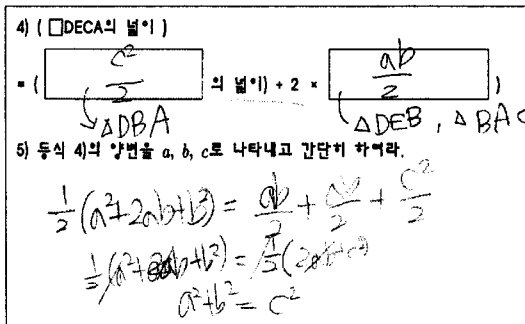 4) ( □DECA의 넓이 )
= ( c²/2 의 넓이) + 2 × ab/2 )
△DBA △DEB , △BAC
5) 등식 4)의 양변을 a, b, c로 나타내고 간단히 하여라.
1/2 (a²+2ab+b²) = ab/2 + ab/2 + c²/2
1/2 (a²+2ab+b²) = 1/2 (2ab+c²)
a²+b² = c²